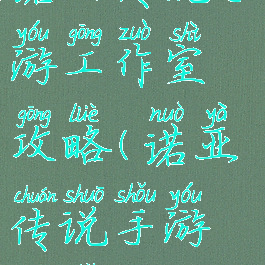 yóu gōng zuò shì
游工作室
gōng lüè nuò yà
攻略(诺亚
chuán shuō shǒu yóu
传说手游